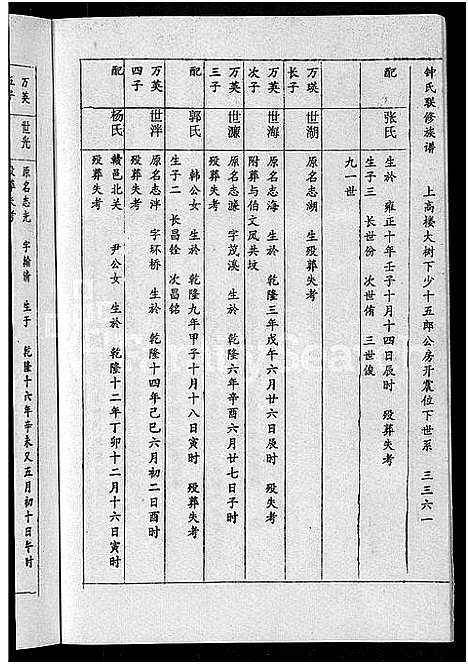 钟氏联修族谱 上高楼大树下少十五郎公房开震位下世系 三三六一
配 张氏 生於 雍正十年壬子十月十四日辰时 殁葬失考
生子三 长世份 次世侑 三世俊
九一世
万瑛 长子 世湖 原名志湖 生殁葬失考
万英 次子 世海 原名志海 生於 乾隆三年戊午六月廿六日辰时
附葬与伯文凤共坟
万英 三子 世濂 原名志濂 字茂溪 生於 乾隆六年辛酉六月廿七日子时
配 郭氏 韩公女 生於 乾隆九年甲子十月十八日寅时 殁葬失考
生子二 长昌铨 次昌铭
万英 四子 世泮 原名志泮 字环桥 生於 乾隆十四年己巳六月初二日酉时
殁葬失考
配 杨氏 赣邑北关 尹公女 生於 乾隆十二年丁卯十二月十六日寅时
殁葬失考
万英 五子 世光 原名志光 字翰清 生于 乾隆十六年辛未又五月初十日午时
殁葬失考
FamilySearch